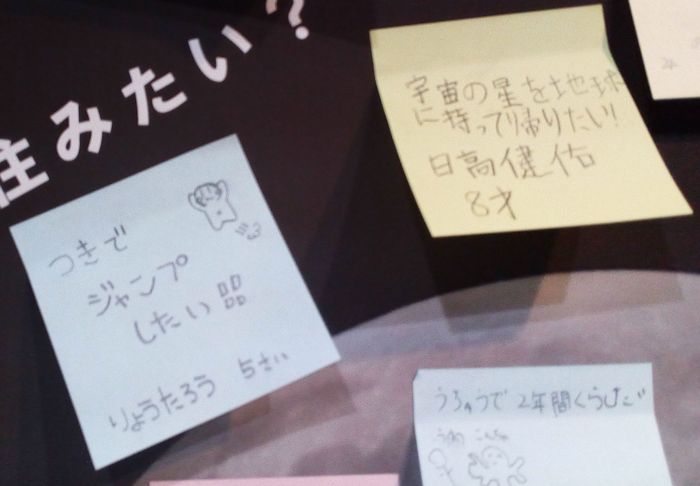 住みたい?
宇宙の星を地球
に持って帰りたい!
日高健佑
8才
つきで
ジャンプ
したい
りょうたろう 5さい
うちゅうで 2年間くらし